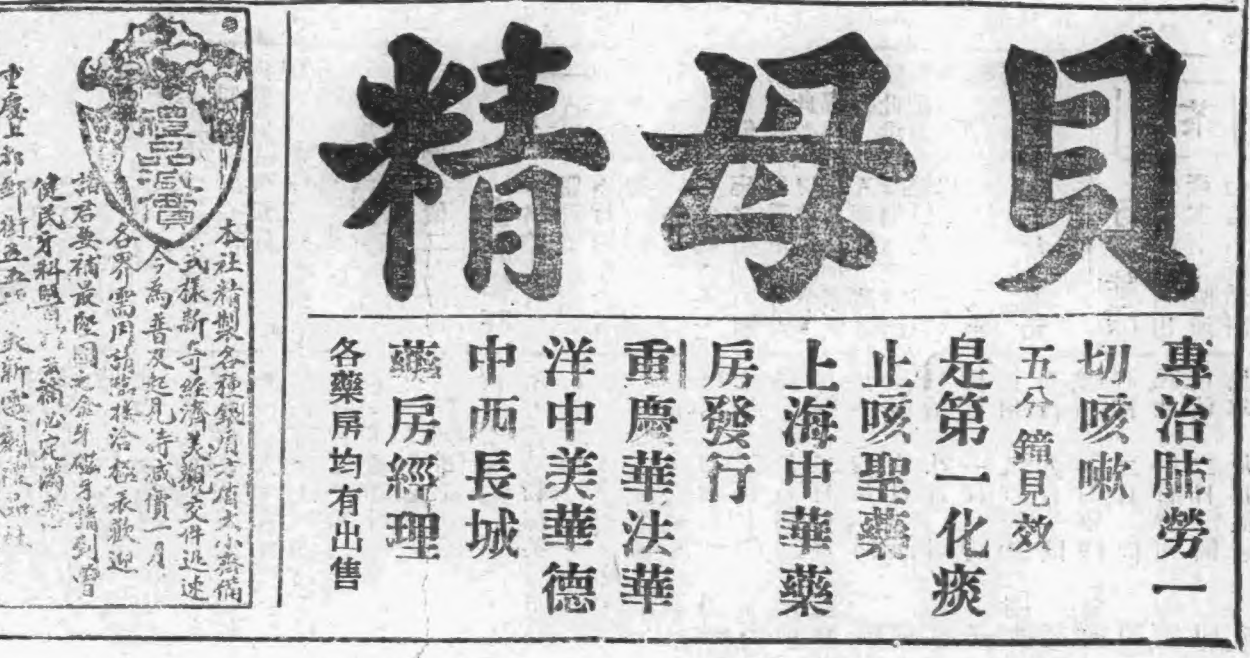 貝母精
專治肺勞一
切咳嗽
五分鐘見效
是第一化痰
止咳聖藥
上海中華藥
房發行
重慶華法華
洋中美華德
中西長城
藥房經理
各藥房均有出售
禮品減價
本社精製各種銀盾大小齊備
式樣新奇經濟美觀交件迅速
今為普及起見特減價一月
各界需用請臨樣洽極表歡迎
諸君要補最堅固之金牙磁牙請到曾
健民牙科醫 必定滿意
重慶上都郵街五五